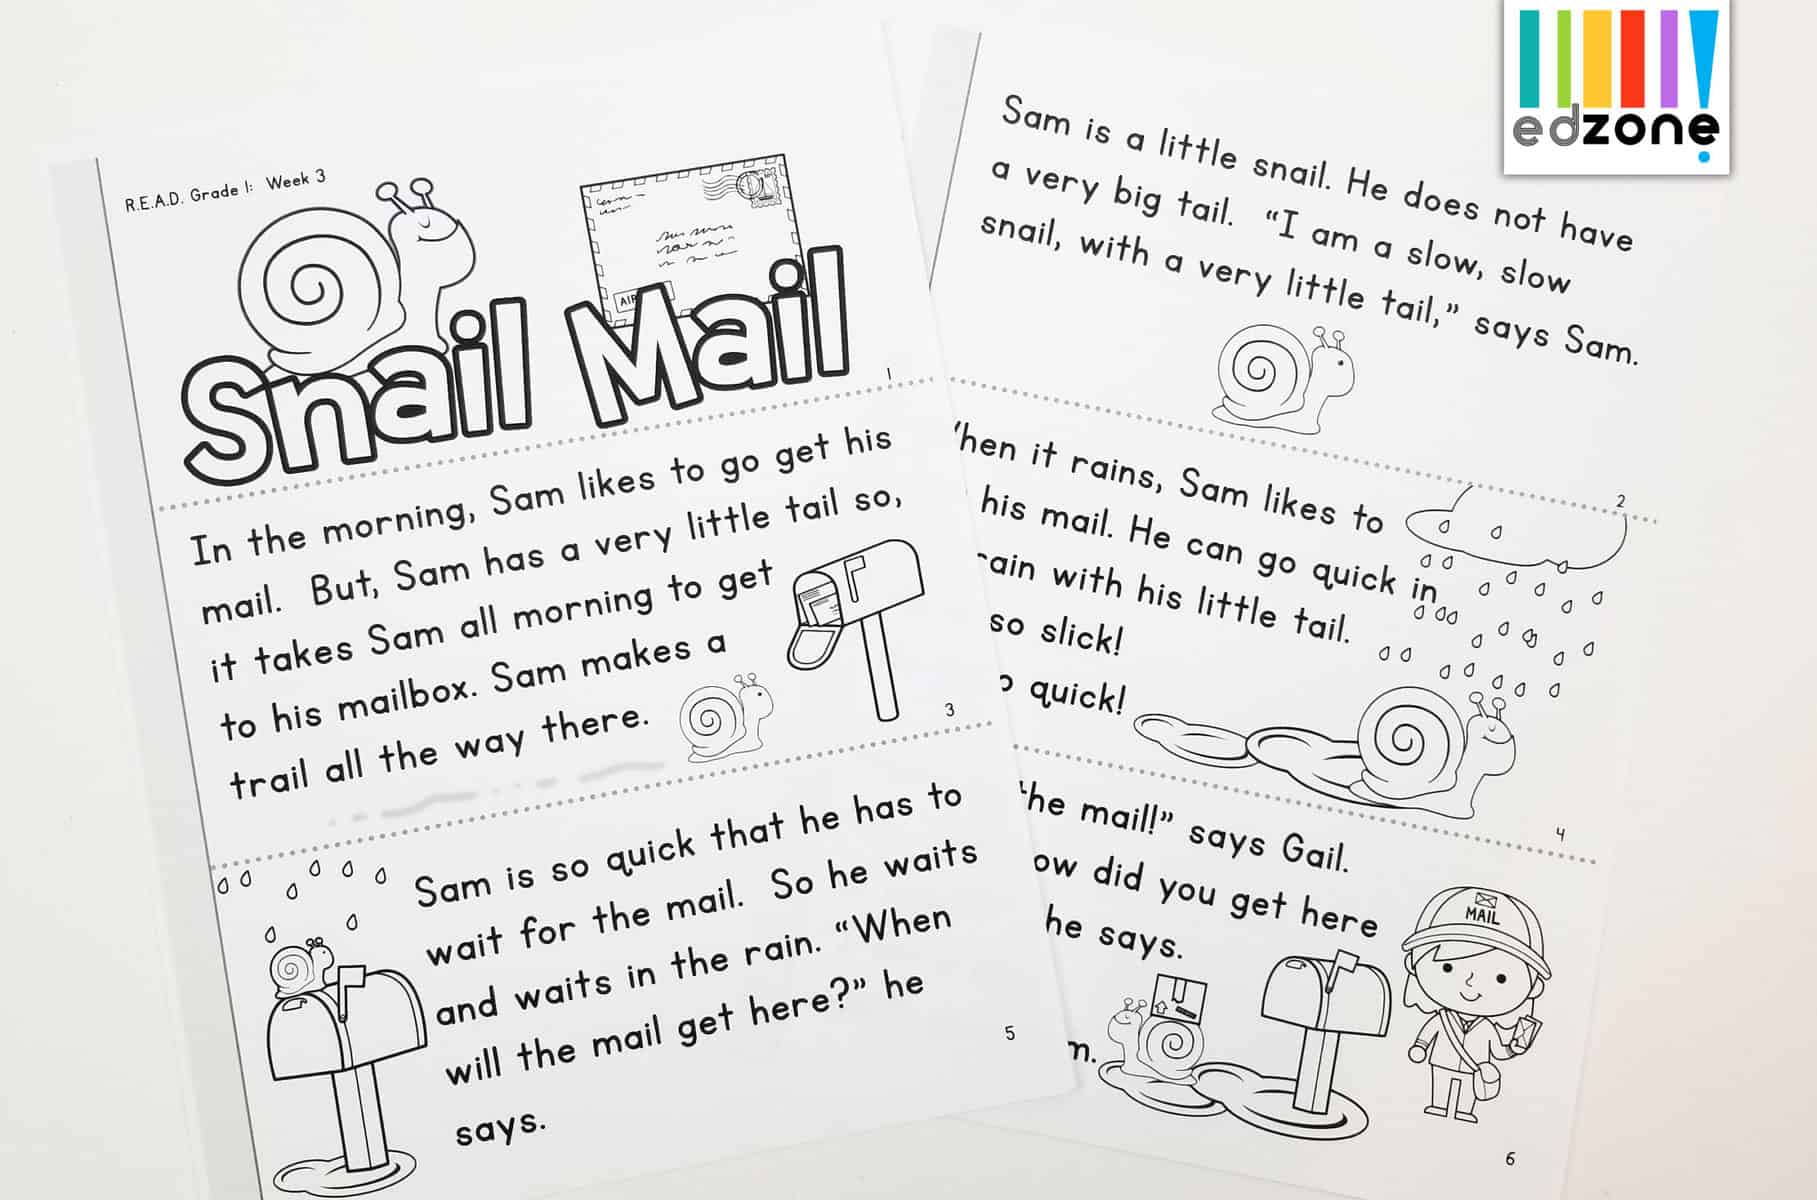 R.E.A.D. Grade 1: Week 3
Snail Mail
1
In the morning, Sam likes to go get his
mail. But, Sam has a very little tail so,
it takes Sam all morning to get
to his mailbox. Sam makes a
trail all the way there.
3
Sam is so quick that he has to
wait for the mail. So he waits
and waits in the rain. “When
will the mail get here?” he
says.
5
Sam is a little snail. He does not have
a very big tail. “I am a slow, slow
snail, with a very little tail,” says Sam.
2
hen it rains, Sam likes to
his mail. He can go quick in
rain with his little tail.
so slick!
quick!
4
he mail!” says Gail.
ow did you get here
he says.
m.
MAIL
6
edzone